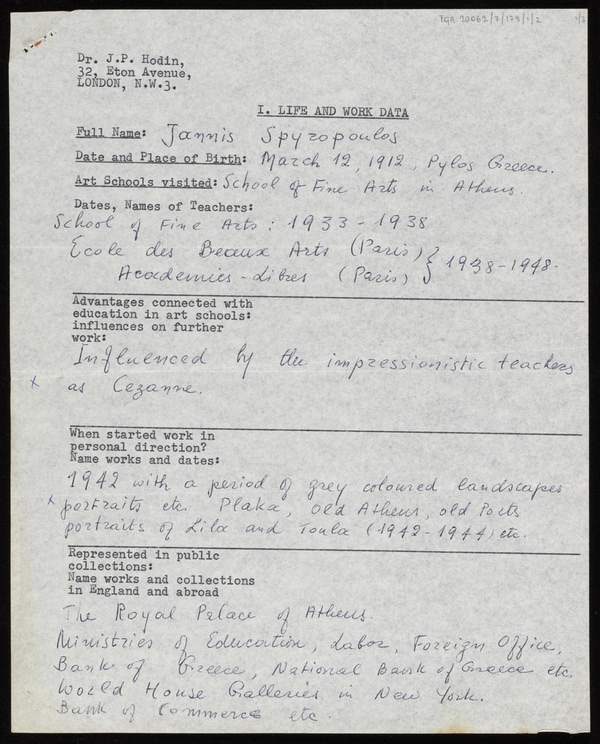 TGA 20062/7/179/1/2
1/2
Dr. J.P. Hodin,
32, Eton Avenue,
LONDON, N.W.3.
I. LIFE AND WORK DATA
Full Name: Jannis Spyropoulos
Date and Place of Birth: March 12, 1912, Pylos Greece.
Art Schools visited: School of Fine Arts in Athens.
Dates, Names of Teachers:
School of Fine Arts: 1933-1938
Ecole des Beaux Arts (Paris) } 1938-1948.
Academies-Libres (Paris)
Advantages connected with
education in art schools:
influences on further
work:
Influenced by the impressionistic teachers
x as Cezanne.
When started work in
personal direction?
Name works and dates:
1942 with a period of grey coloured landscapes
x portraits etc. Plaka, old Athens, old Ports
portraits of Lila and Toula (1942-1944) etc.
Represented in public
collections:
Name works and collections
in England and abroad
The Royal Palace of Athens.
Ministries of Education, Labor, Foreign Office,
Bank of Greece, National Bank of Greece etc.
World House Galleries in New York.
Bank of Commerce etc.